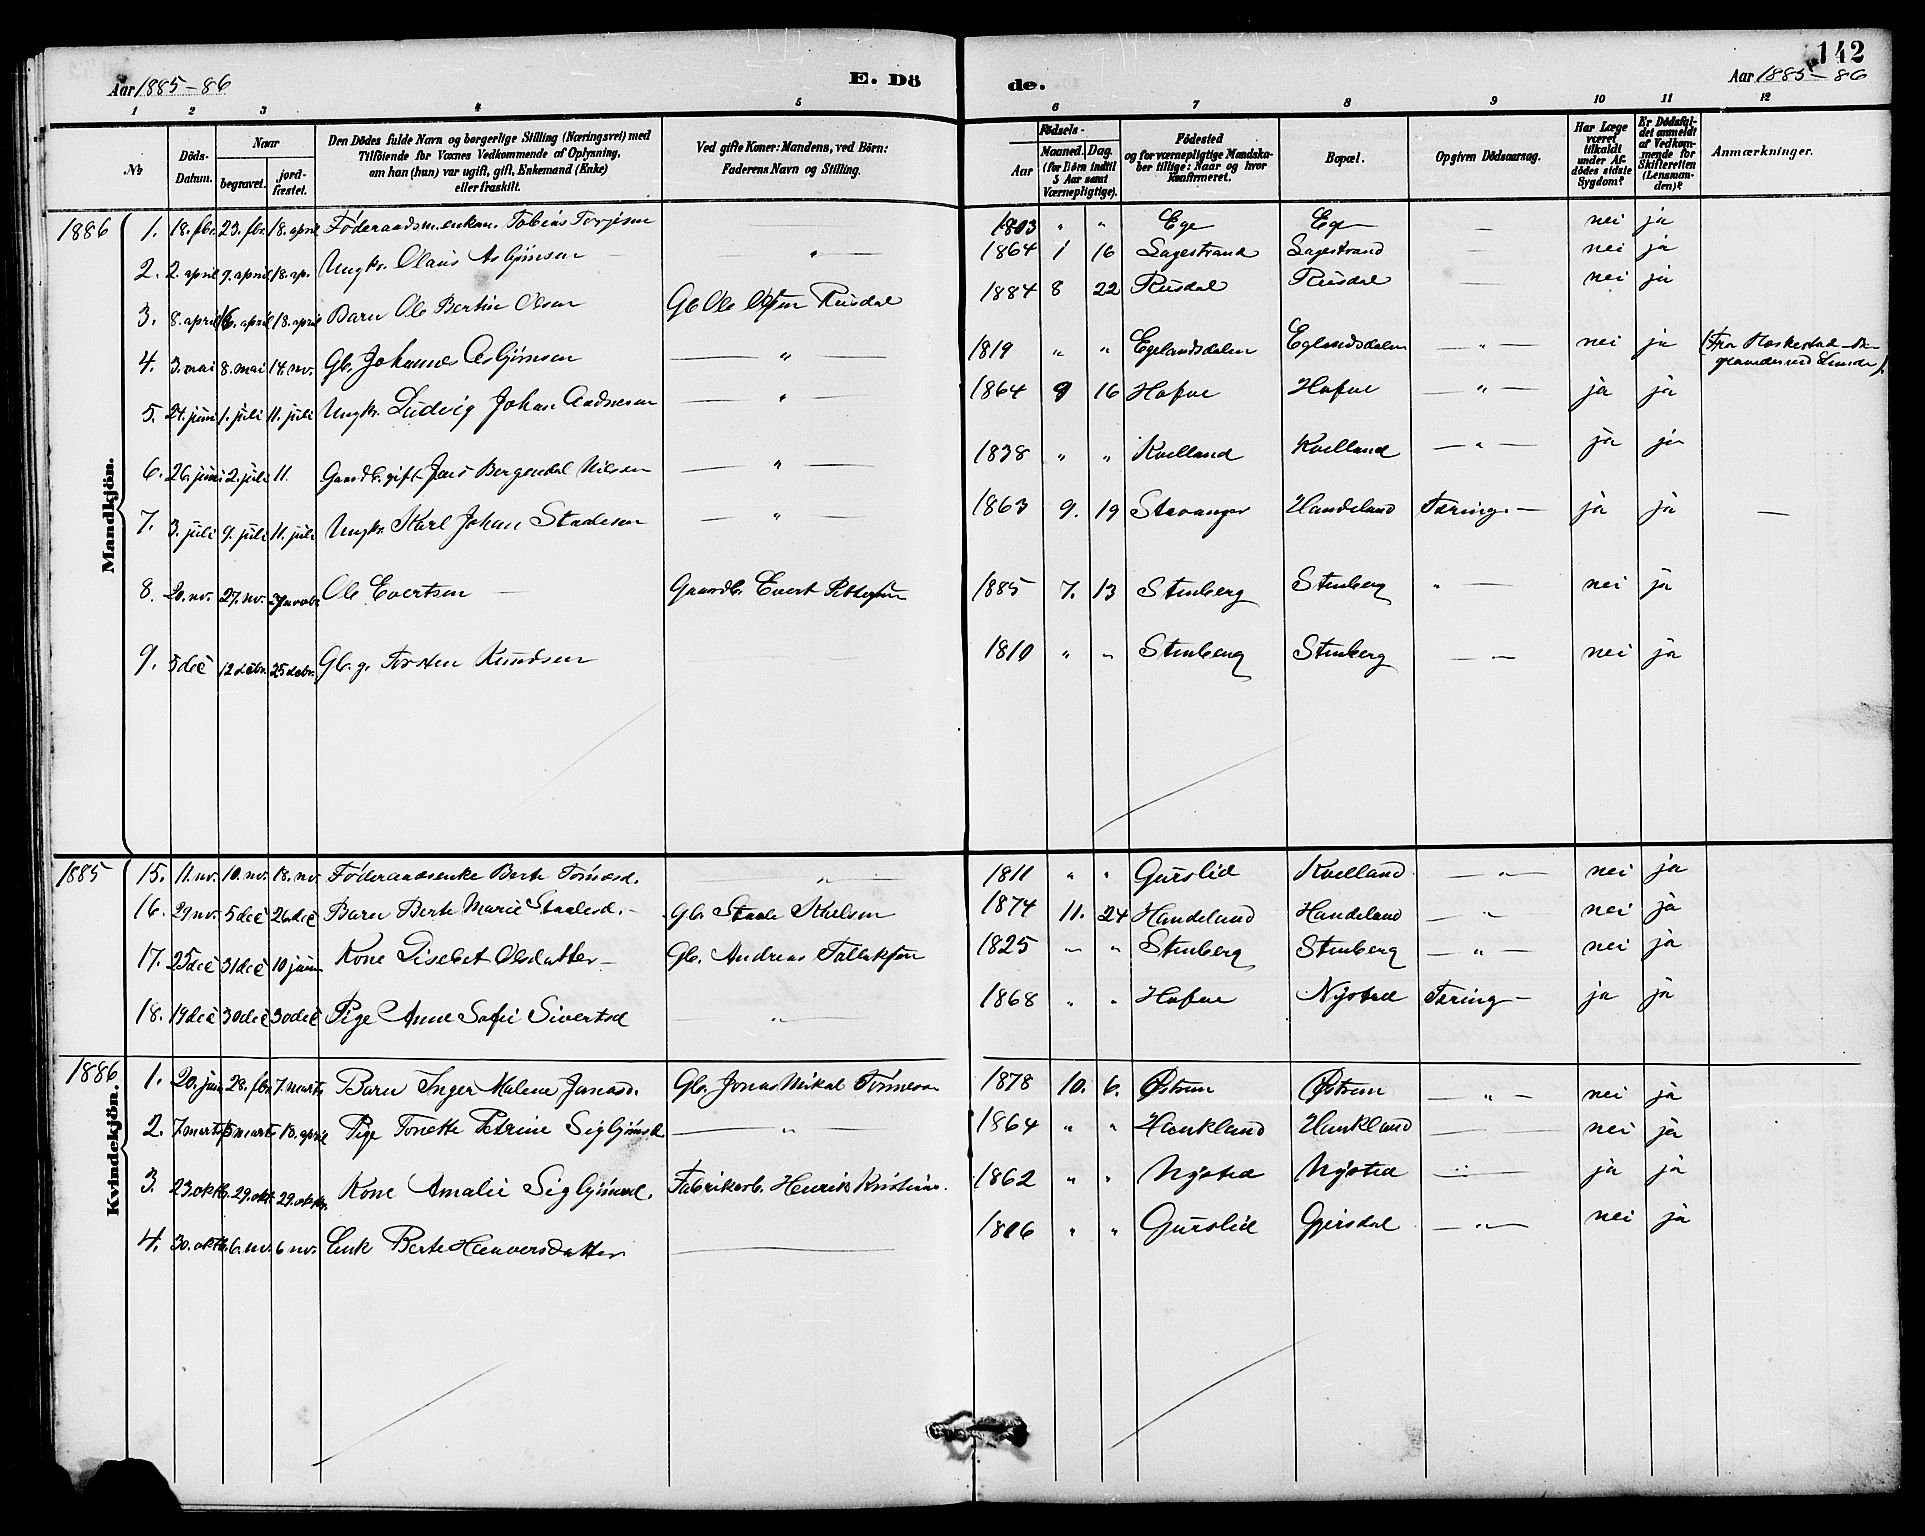 142
Aar 1885-86 E. Dö de. Aar 1885-86
1 2 3 4 5 6 7 8 9 10 11 12
No Döds-Datum. Naar begravet. jord-fæstet. Den Dödes fulde Navn og borgerlige Stilling (Næringsvei) med Tilföiende for Voxnes Vedkommende af Oplysning, om han (hun) var ugift, gift, Enkemand (Enke) eller fraskilt. Ved gifte Koner: Mandens, ved Börn: Faderens Navn og Stilling. Födsels- Aar Maaned. Dag. (for Börn indtil 5 Aar samt Værnepligtige). Födested og for værnepligtige Mandskaber tillige: Naar og hvor konfirmeret. Bopæl. Opgiven Dödsaarsag. Har Læge været tilkaldt under Afdödes sidste Sygdom? Er Dödsfaldet anmeldt af Vedkommende for Skifteretten (Lensmanden)? Anmærkninger.
Mandkjön.
1886 1. 18. fbr. 23. fbr. 18. april Föderaadsm. enkem. Tobias Torjesen 1803 " " Ege Ege — nei ja
2. 2. april 9. april 18. ap. Ungkr. Olaus Asbjörnsen " 1864 1 16 Lagestrand Lagestrand — nei ja
3. 8. april 16. april 18. april Barn Ole Bertin Olsen Gb Ole Olsen Rusdal 1884 8 22 Rusdal Rusdal — nei ja
4. 3. mai 8. mai 14. nv. Gb. Johannes Asbjörnsen — " — 1819 " " Egelandsdalen Eglandsdalen — " — nei ja (Fra
5. 24. juni 1. juli 11. juli Ungkr. Ludvig Johan Aadnesen — " — 1864 9 16 Hafsue Hafsue — " — ja ja
6. 26. juni 2. juli 11. Gaardb. gift Jens Bergendal Nilsen — " — 1838 " " Kvelland Kvelland — " — ja ja
7. 3. juli 9. juli 11. juli Ungkr. Karl Johan Stalesen — " — 1863 9. 19 Stavanger Handeland Tæring. — ja ja —
8. 20. nv. 27. nv. 27 novbr. Ole Evertsen — Gaardb. Evert Pettersen 1885 7. 13 Stenberg Stenberg " — nei ja
9. 5 dec 12 decbr. 25 decbr. Gb. g. Torsten Knudsen 1810 " " Stenberg Stenberg — " — nei ja
Kvindekjön.
1885 15. 11. nv. 10. nv. 18. nv. Föderaadsenke Berte Tönnesd. — " — 1811 " " Gurslid Kvelland — " — nei ja
16. 29 nv. 5 dec 26 dec Barn Berte Marie Staalesd. — Gb. Staale 1874 11. 24 Handeland Handeland — " — nei ja
17. 25 dec 31 dec 10 janu Kone Lisebet Olsdatter — Gb. Andreas Tallaksen 1825 " " Stenberg Stenberg — " — nei ja
18. 19 dec 30 dec 30 dec Pige Anne Sofie Sivertsd — " — 1868 " " Hafsue Nysted Tæring — ja ja
1886 1. 20. jan 28. fbr 7. marts Barn Inger Malene Jonasd. Gb. Jonas Mikal Tönnesen 1878 10. 6. Østrem Østrem — " — nei ja
2. 7. marts 13 marts 18. april Pige Tonette Petrine Sigbjörnsd. — " — 1864 " " Haukland Haukland — nei ja
3. 23. oktb. 29. okt. 29. oktb. Kone Amalie Sigbjörnsd. Fabrikarb. Henrik Kristians. 1862 " " Nysted Nysted — " — ja ja
4. 30. oktb. 6. nv. 6 nv. Enk Berte Haaversdatter — 1806 " " Gurslid Gyersdal — " — nei ja